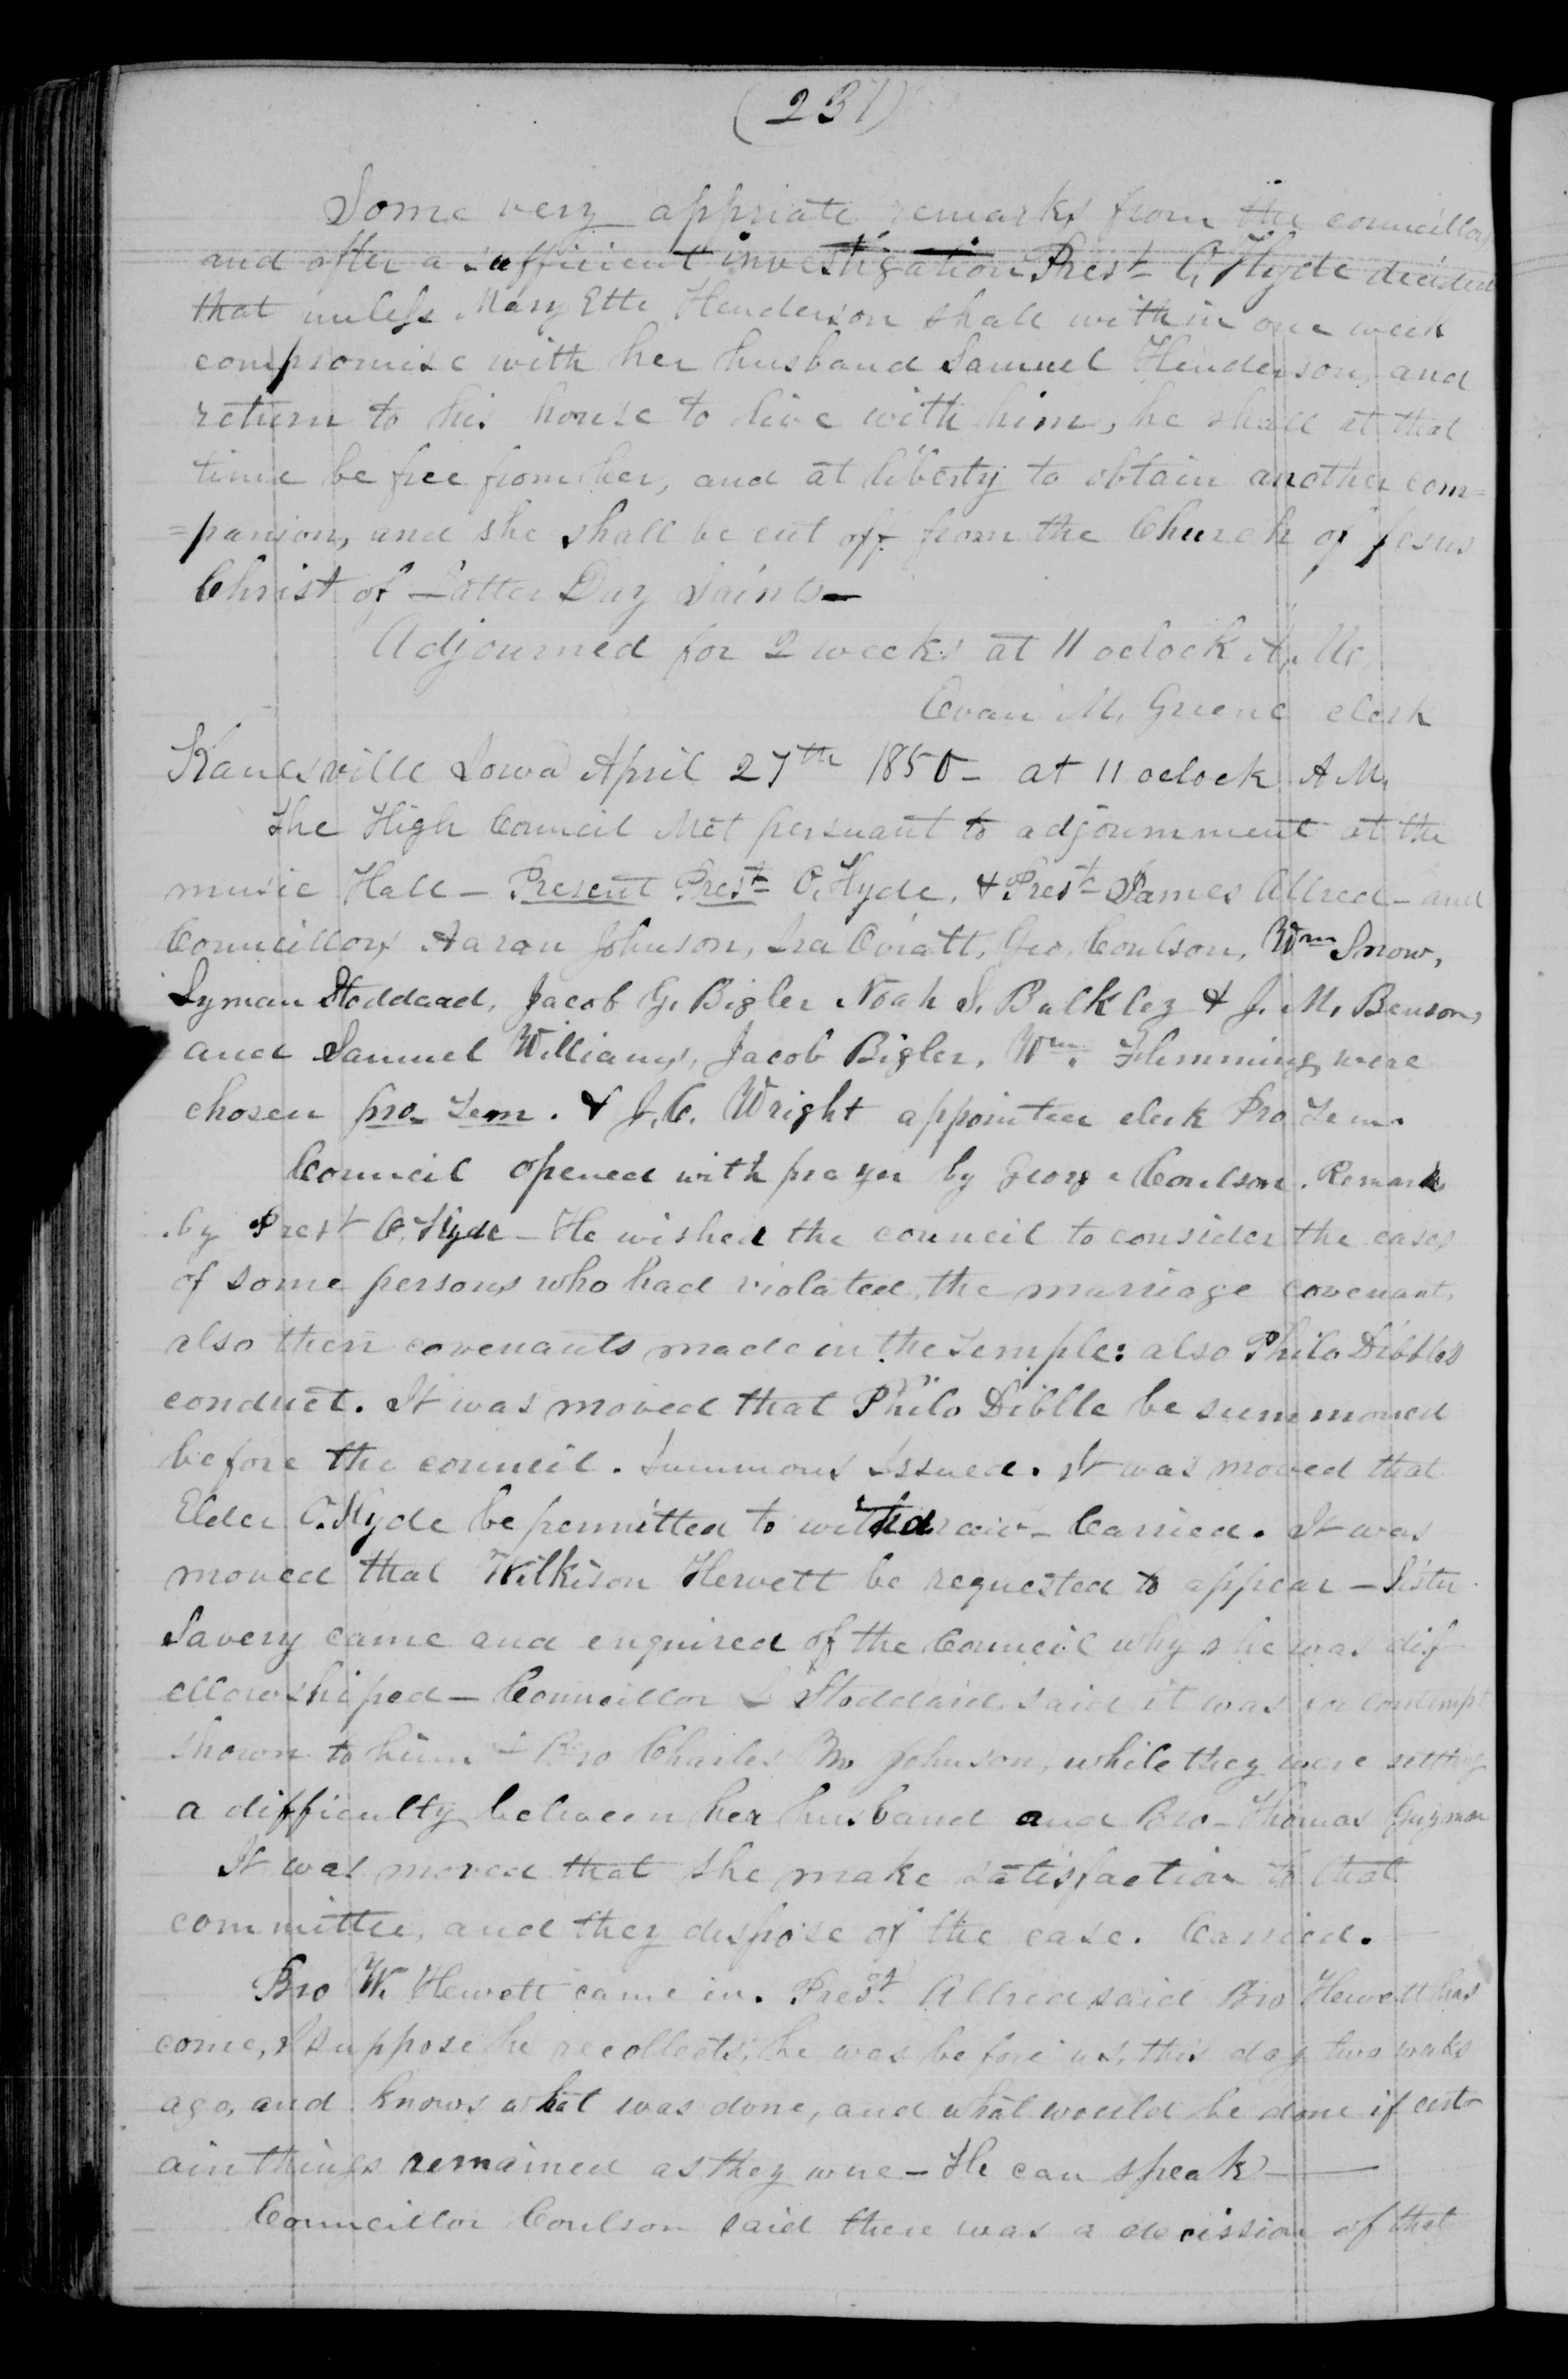 (231)
Some very appriate remarks from the councillors
and after a sufficient investigation Prest O, Hyde decided
that unless Mary Ette Henderson shall within one week
compromise with her husband Samuel Henderson, and
return to his house to live with him, he shall at that
time be free from her, and at liberty to obtain another com=
=panion, and she shall be cut off from the Church of Jesus
Christ of Latter Day Saints—
Adjourned for 2 weeks at 11 oclock A, M,
Evan M, Greene clerk
Kanesville Iowa April 27th 1850— at 11 oclock A M,
The High Council Met persuant to adjournment at the
music Hall — Present Prest O, Hyde, & Prest James Allred — and
Councillors Aaron Johnson, Ira Oviatt, Geo, Coulson, Wm Snow,
Lyman Stoddard, Jacob G, Bigler Noah S, Bulkley & J. M, Benson,
and Samuel Williams, Jacob Bigler, Wm. Flemming, were
chosen pro_ Tem. & J, C, Wright appointed clerk Pro Tem.
Council opened with prayer by George Coulson. Remarks
by Prest O, Hyde — He wished the council to consider the cases
of some persons who had violated the marriage covenant,
also their covenants made in the Temple: also Philo Dibbles
conduct. It was moved that Philo Diblle be summoned
before the council. Summons Issued. It was moved that
Elder O. Hyde be permitted to withdraw — Carried. It was
moved that Wilkison Hewett be requested to appear — Sister
Savery came and enquired of the Council why she was disf
ellowshiped — Councillor L Stoddard said it was for contempt
shown to him & Bro Charles M. Johnson, while they were setting
a difficulty between her husband and Bro — Thomas
It was moved that she make satisfaction to that
committee, and they dispose of the case. Carried.
Bro W. Hewett came in. Prest. Allred said Bro Hewett has
come, I suppose he recollects, he was before us, this day two weeks
ago, and knows what was done, and what would be done if cert-
ain things remained as they were — He can speak —
Councillor Coulson said there was a decission of that